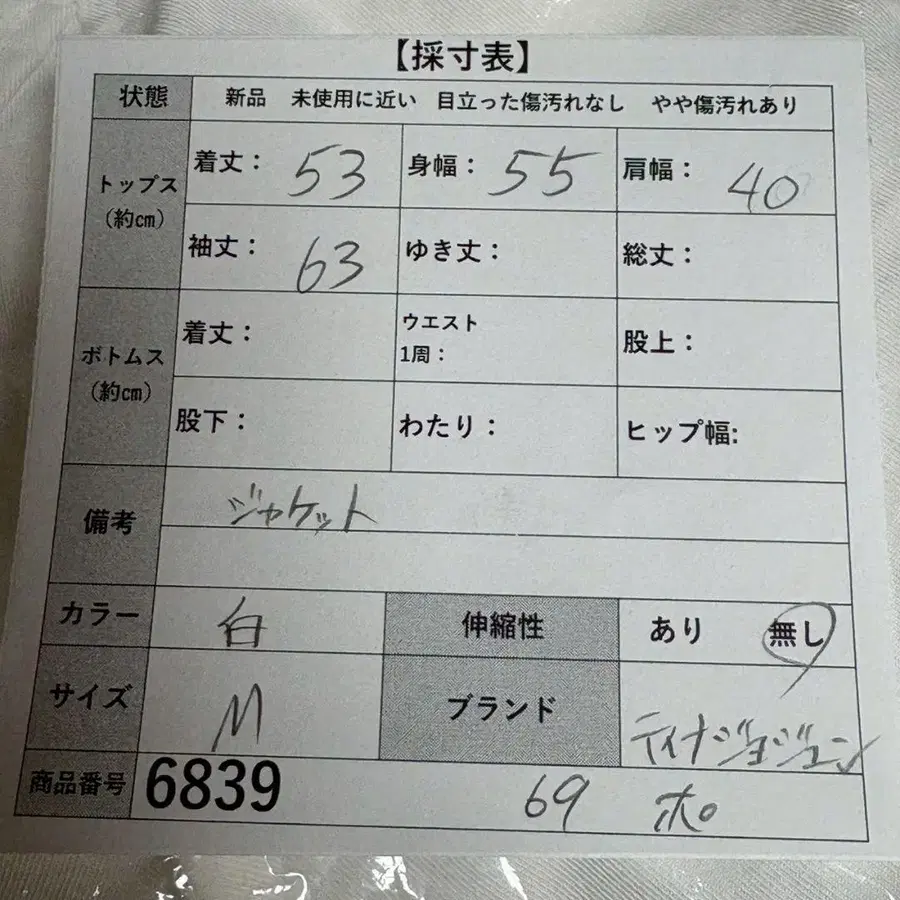 【採寸表】
状態 新品 未使用に近い 目立った傷汚れなし やや傷汚れあり
トップス
(約㎝)
着丈： 53 身幅： 55 肩幅： 40
袖丈： 63 ゆき丈： 総丈：
ボトムス
(約㎝)
着丈： ウエスト
1周： 股上：
股下： わたり： ヒップ幅:
備考 ジャケット
カラー 白 伸縮性 あり 無し
サイズ M ブランド ティナジョジュン
商品番号 6839 69 ポ